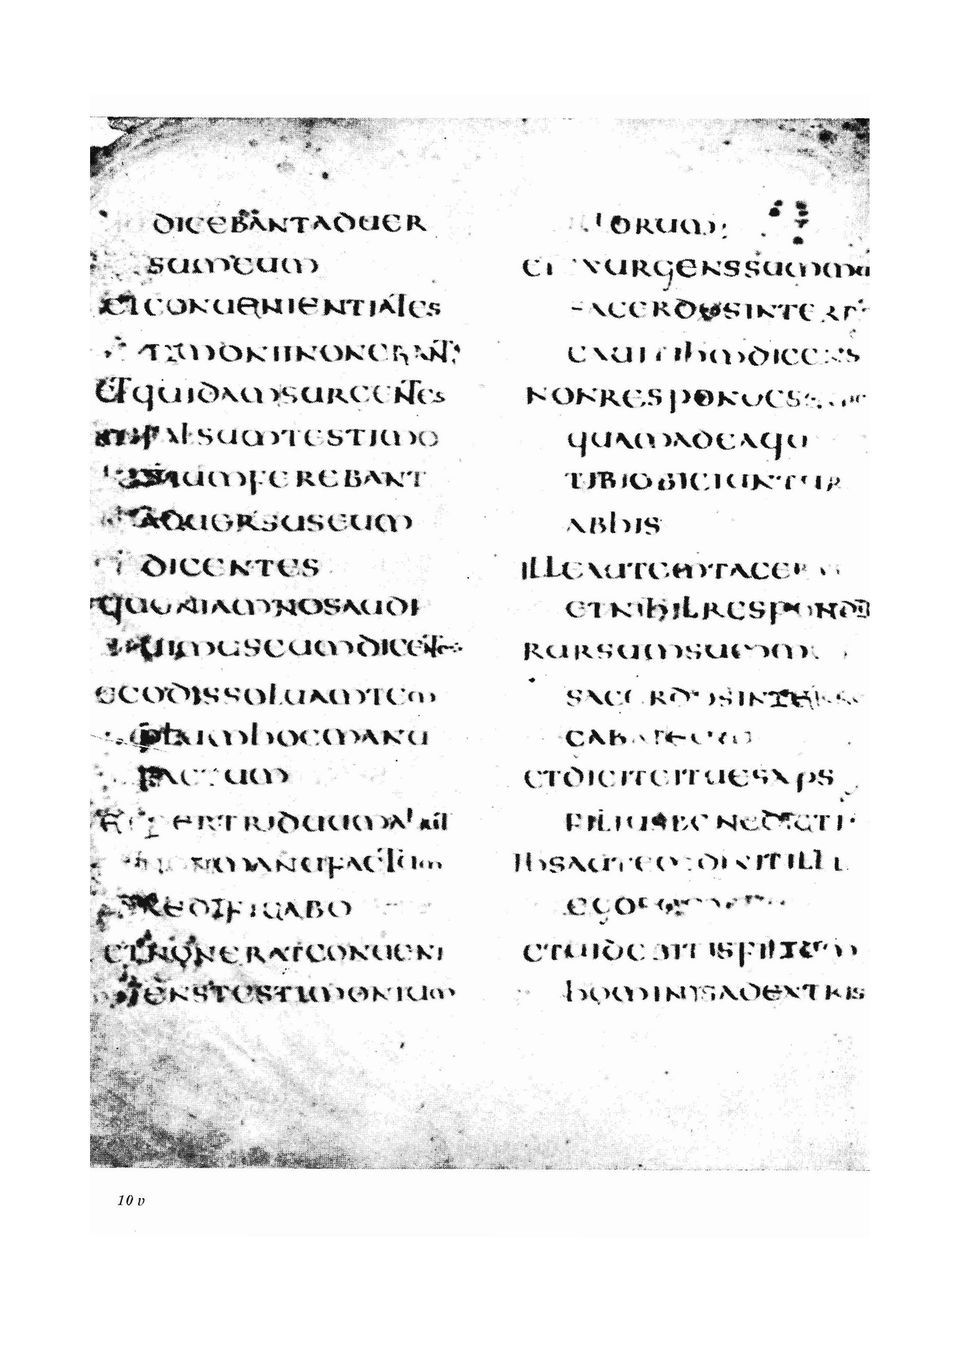 DICEBANTADUER
SUMEUM
ETCONUENIENTIALES
TIMONIINONERANT
ETQUIDAMSURGENTES
FALSUMTESTIMO
NIUMFEREBANT
ADUERSUSEUM
DICENTES
QUONIAMNOSAUDI
UIMUSEUMDICENTEM
EGODISSOLUAMTEM
PLUMHOCMANU
FACTUM
ETPERTRIDUUMALIUT
NONMANUFACTUM
REEDIFICABO
ETNONERATCONUENI
ENSTESTIMONIUM
ILLORUM
ETEXURGENSSUMMUS
SACERDOSINTERR
IHMDICENS
NONRESPONDES
QUAMADEAQU
TIBIOBICIUNTUR
ABHIS
ILLEAUTEMTACE
ETNIHILRESPONDI
RURSUMSUMM
SACERDOSINTE
ETDICITEITUESXPS
FILIUSBENEDICTI
IHSAUTE DIXITILLI
EGO
ETUIDEBITISFILIUM
HOMINISADEXTRIS
10 v